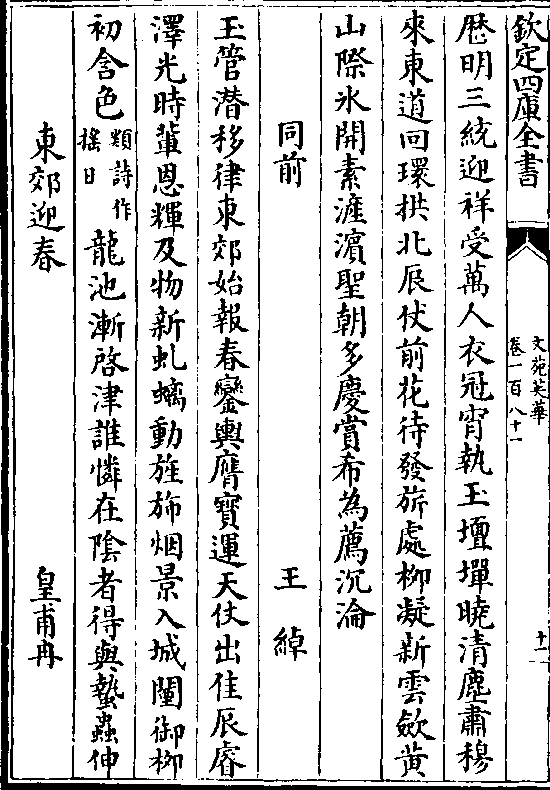 欽定四庫全書
文苑英華
卷一百八十一
十一
厯明三統迎祥受萬人衣冠宵執玉壇墠曉清塵肅穆
來東道回環拱北辰仗前花待發旂處柳凝新雲斂黄
山際氷開素滻濵聖朝多慶賞希為薦沉淪
同前
王綽
玉管潜移律東郊始報春鑾輿膺寳運天仗出佳辰睿
澤光時輩恩輝及物新虬螭動旌斾烟景入城闉御柳
初含色
類詩作
摇日
龍池漸啓津誰憐在陰者得與蟄蟲伸
東郊迎春
皇甫冉